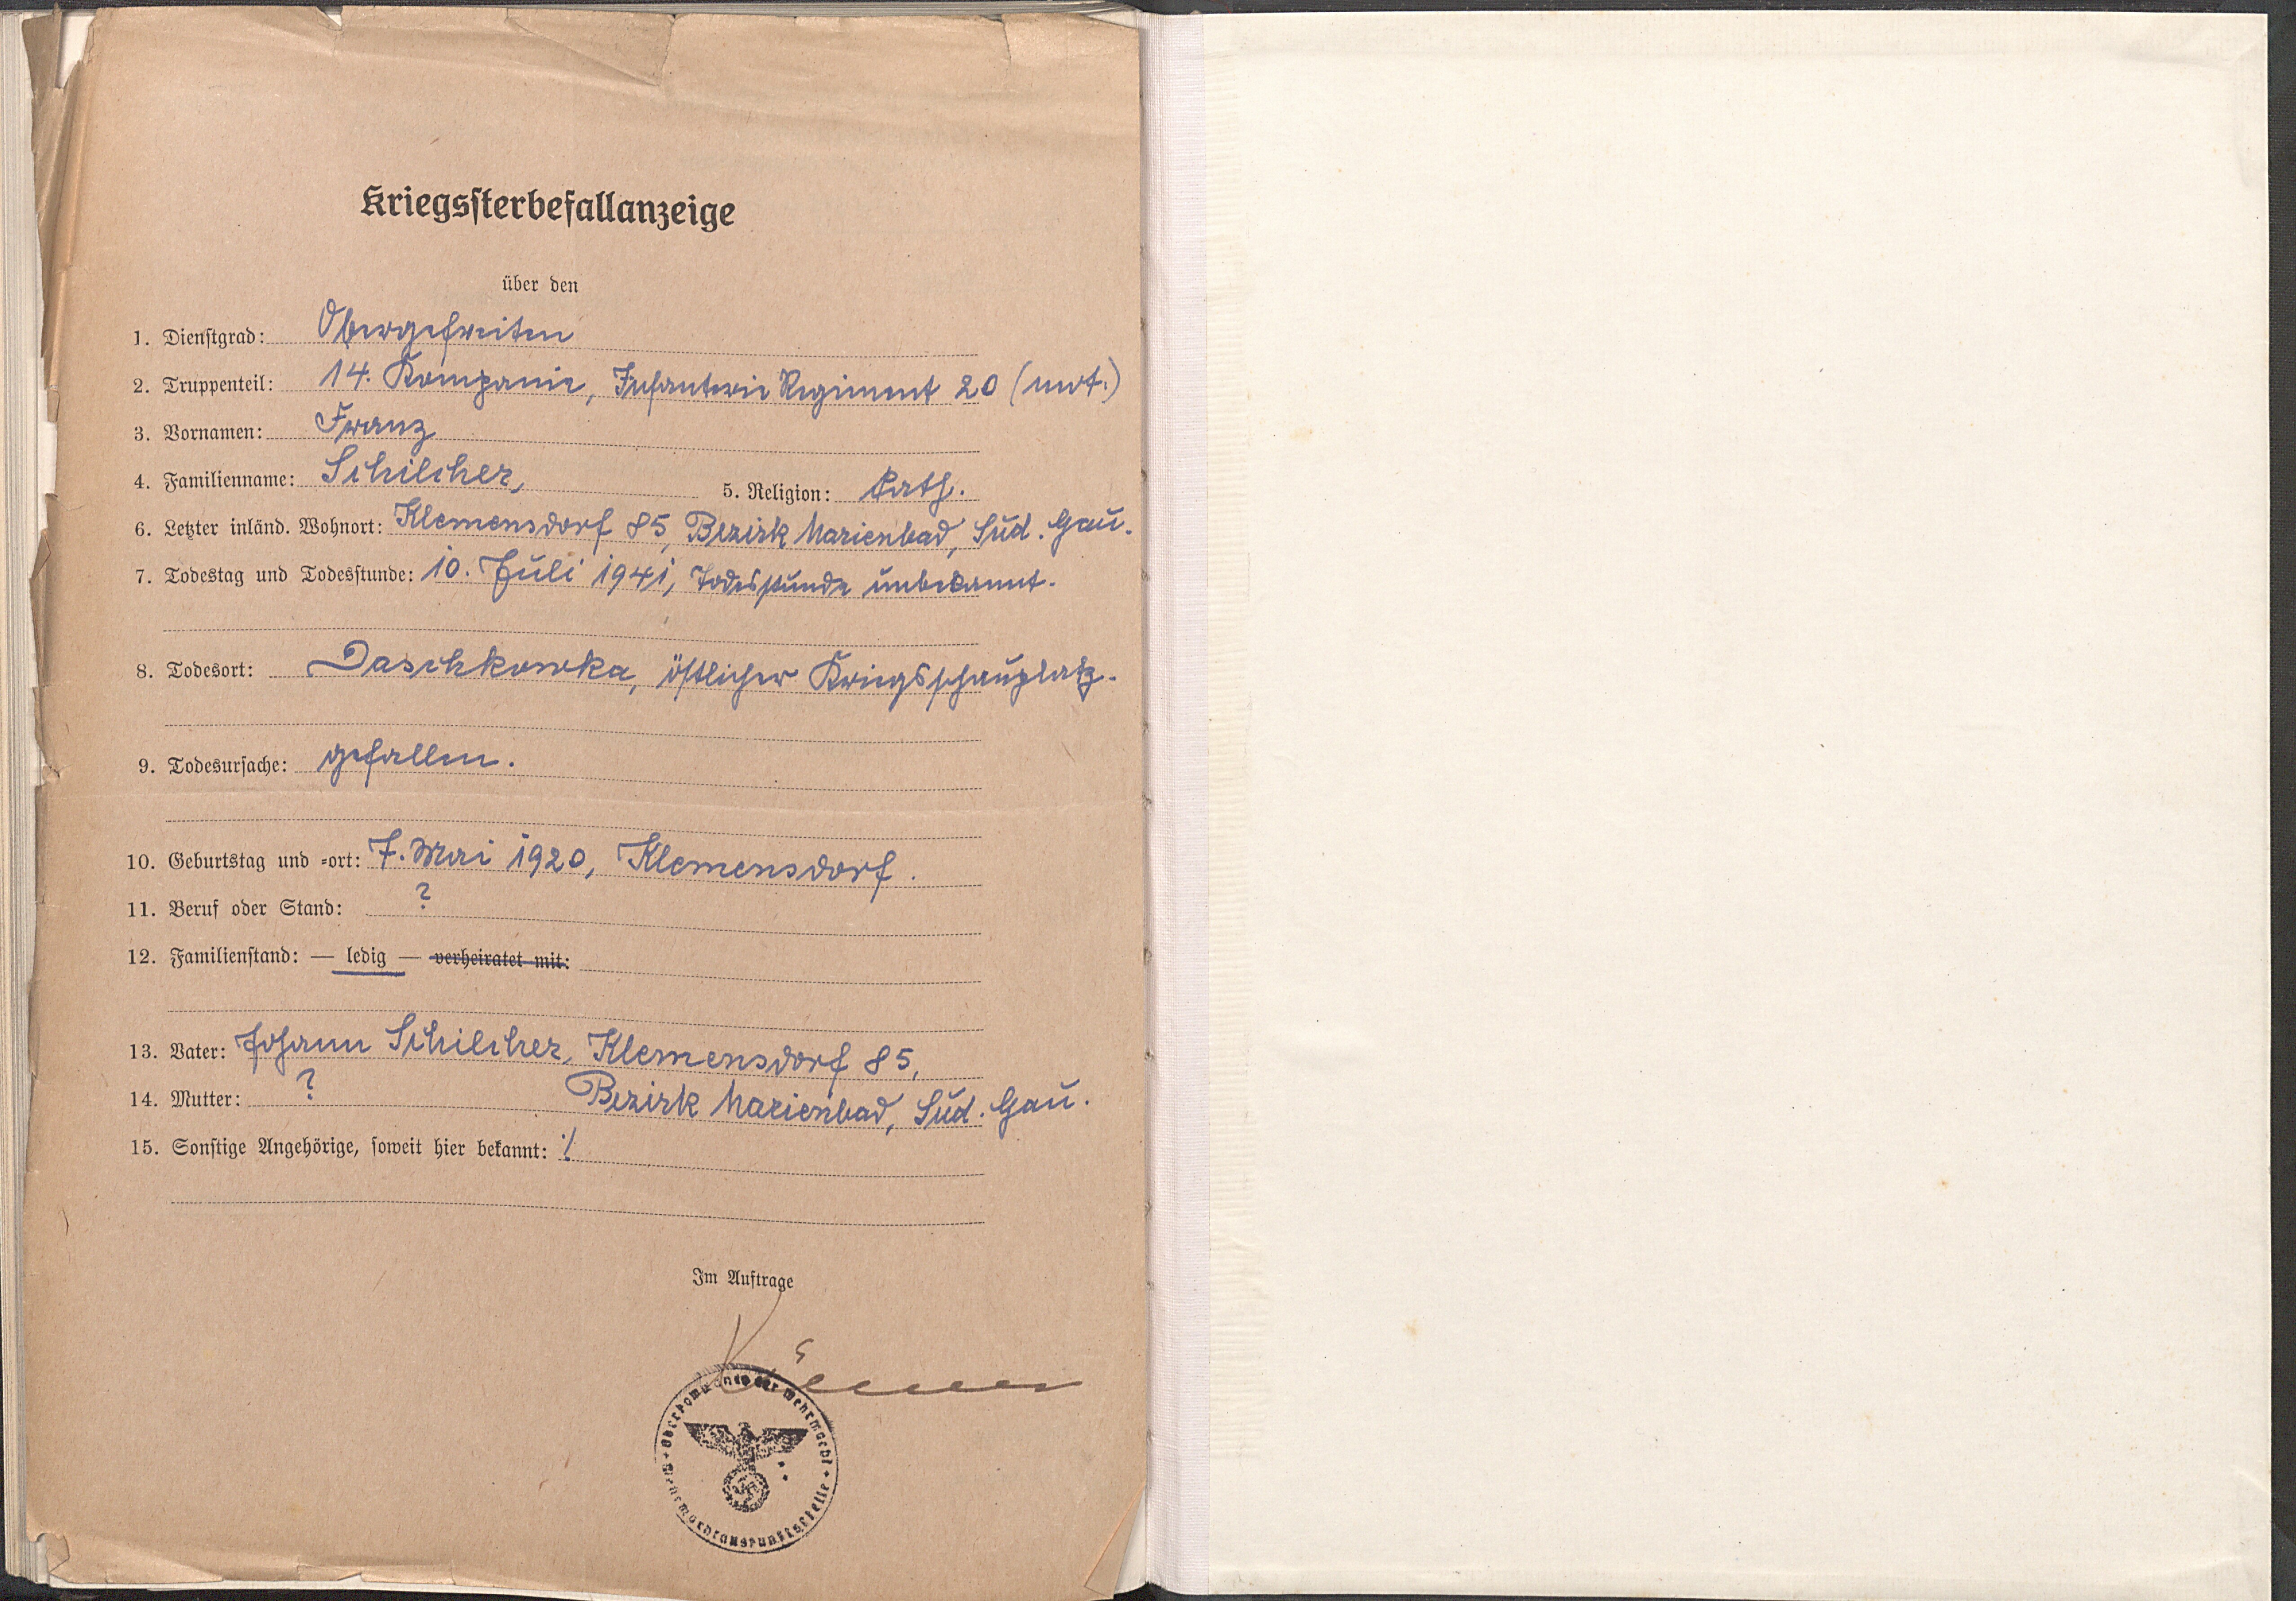 Kriegssterbefallanzeige
über den
1. Dienstgrad: Obergefreiten
2. Truppenteil: 14. Kompanie, Infanterie Regiment 20 (mot.)
3. Vornamen: Franz
4. Familienname: Schilcher, 5. Religion: kath.
6. Letzter inländ. Wohnort: Klemensdorf 85, Bezirk Marienbad, Sud. Gau.
7. Todestag und Todesstunde: 10. Juli 1941, Todesstunde unbekannt.
8. Todesort: Daschkowka, östlicher Kriegsschauplatz.
9. Todesursache: gefallen.
10. Geburtstag und -ort: 7. Mai 1920, Klemensdorf.
11. Beruf oder Stand: ?
12. Familienstand: — ledig — verheiratet mit:
13. Vater: Johann Schilcher, Klemensdorf 85,
14. Mutter: ? Bezirk Marienbad, Sud. Gau.
15. Sonstige Angehörige, soweit hier bekannt: ./.
Im Auftrage
Oberkommando der Wehrmacht
Wehrmachtauskunftstelle